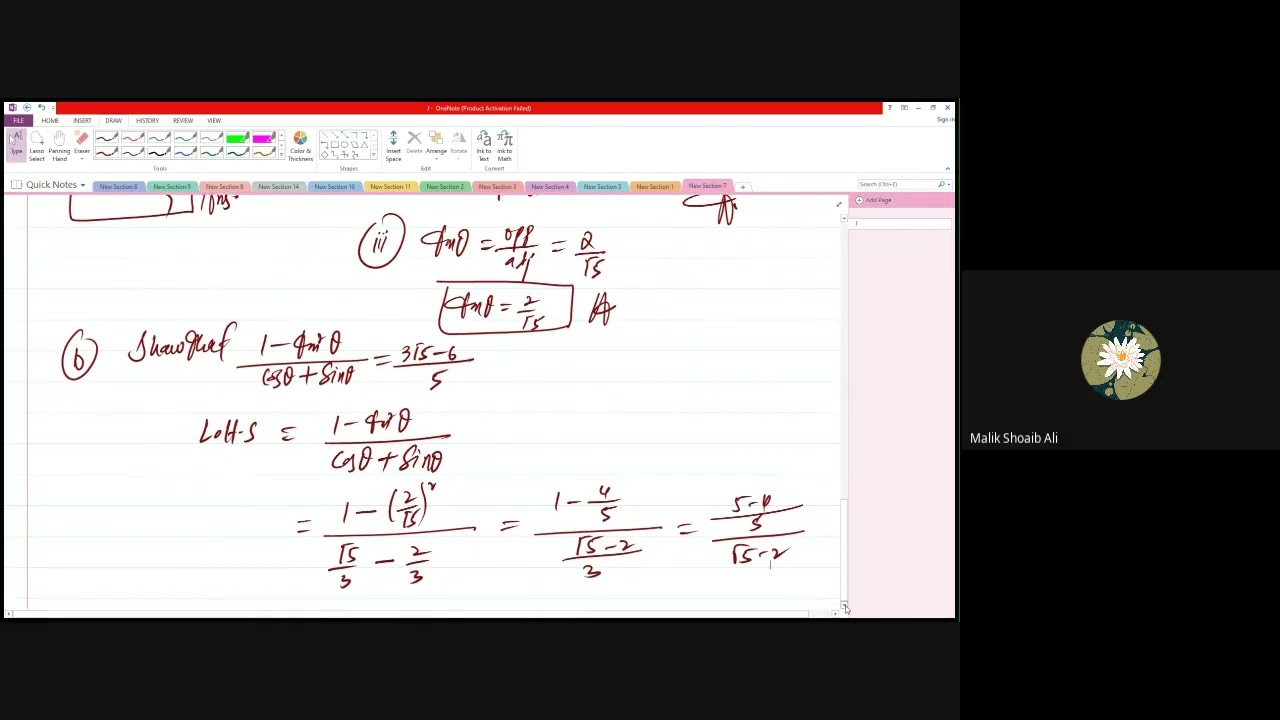 J - OneNote (Product Activation Failed)
FILE HOME INSERT DRAW HISTORY REVIEW VIEW
Sign in
Type Lasso Select Panning Hand Eraser Color & Thickness Insert Space Delete Arrange Rotate Ink to Text Ink to Math
Tools Shapes Edit Convert
Quick Notes New Section 6 New Section 8 New Section 9 New Section 14 New Section 10 New Section 11 New Section 2 New Section 3 New Section 4 New Section 5 New Section 1 New Section 7 Search (Ctrl+E)
Add Page
J
iii tanθ = opp/adj = 2/√5
tanθ = 2/√5
b Show that (1 - tan²θ)/(cosθ + sinθ) = (3√5 - 6)/5
L.H.S = (1 - tan²θ)/(cosθ + sinθ)
= (1 - (2/√5)²)/(√5/3 - 2/3) = (1 - 4/5)/((√5 - 2)/3) = ((5-4)/5)/(√5 - 2)
Malik Shoaib Ali